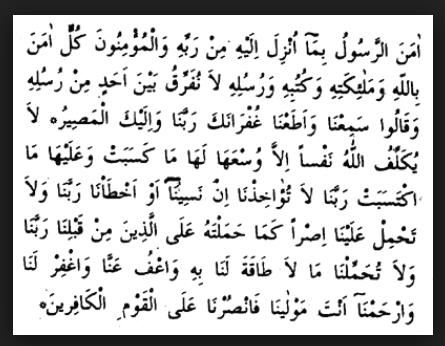 اٰمَنَ الرَّسُولُ بِمَٓا اُنْزِلَ اِلَيْهِ مِنْ رَبِّهِ وَالْمُؤْمِنُونَ كُلٌّ اٰمَنَ
بِاللّٰهِ وَمَلٰئِكَتِهِ وَكُتُبِهِ وَرُسُلِهِ لاَ نُفَرِّقُ بَيْنَ اَحَدٍ مِنْ رُسُلِهِ
وَقَالُوا سَمِعْنَا وَاَطَعْنَا غُفْرَانَكَ رَبَّنَا وَاِلَيْكَ الْمَصِيرُ ه لاَ
يُكَلِّفُ اللّٰهُ نَفْساً اِلاَّ وُسْعَهَا لَهَا مَا كَسَبَتْ وَعَلَيْهَا مَا
اكْتَسَبَتْ رَبَّنَا لاَ تُؤَاخِذْنَا اِنْ نَسِينَٓا اَوْ اَخْطَاْنَا رَبَّنَا وَلاَ
تَحْمِلْ عَلَيْنَا اِصْراً كَمَا حَمَلْتَهُ عَلَى الَّذِينَ مِنْ قَبْلِنَا رَبَّنَا
وَلاَ تُحَمِّلْنَا مَا لاَ طَاقَةَ لَنَا بِهِ وَاعْفُ عَنَّا وَاغْفِرْ لَنَا
وَارْحَمْنَٓا اَنْتَ مَوْلٰينَا فَانْصُرْنَا عَلَى الْقَوْمِ الْكَافِرِينَ ه